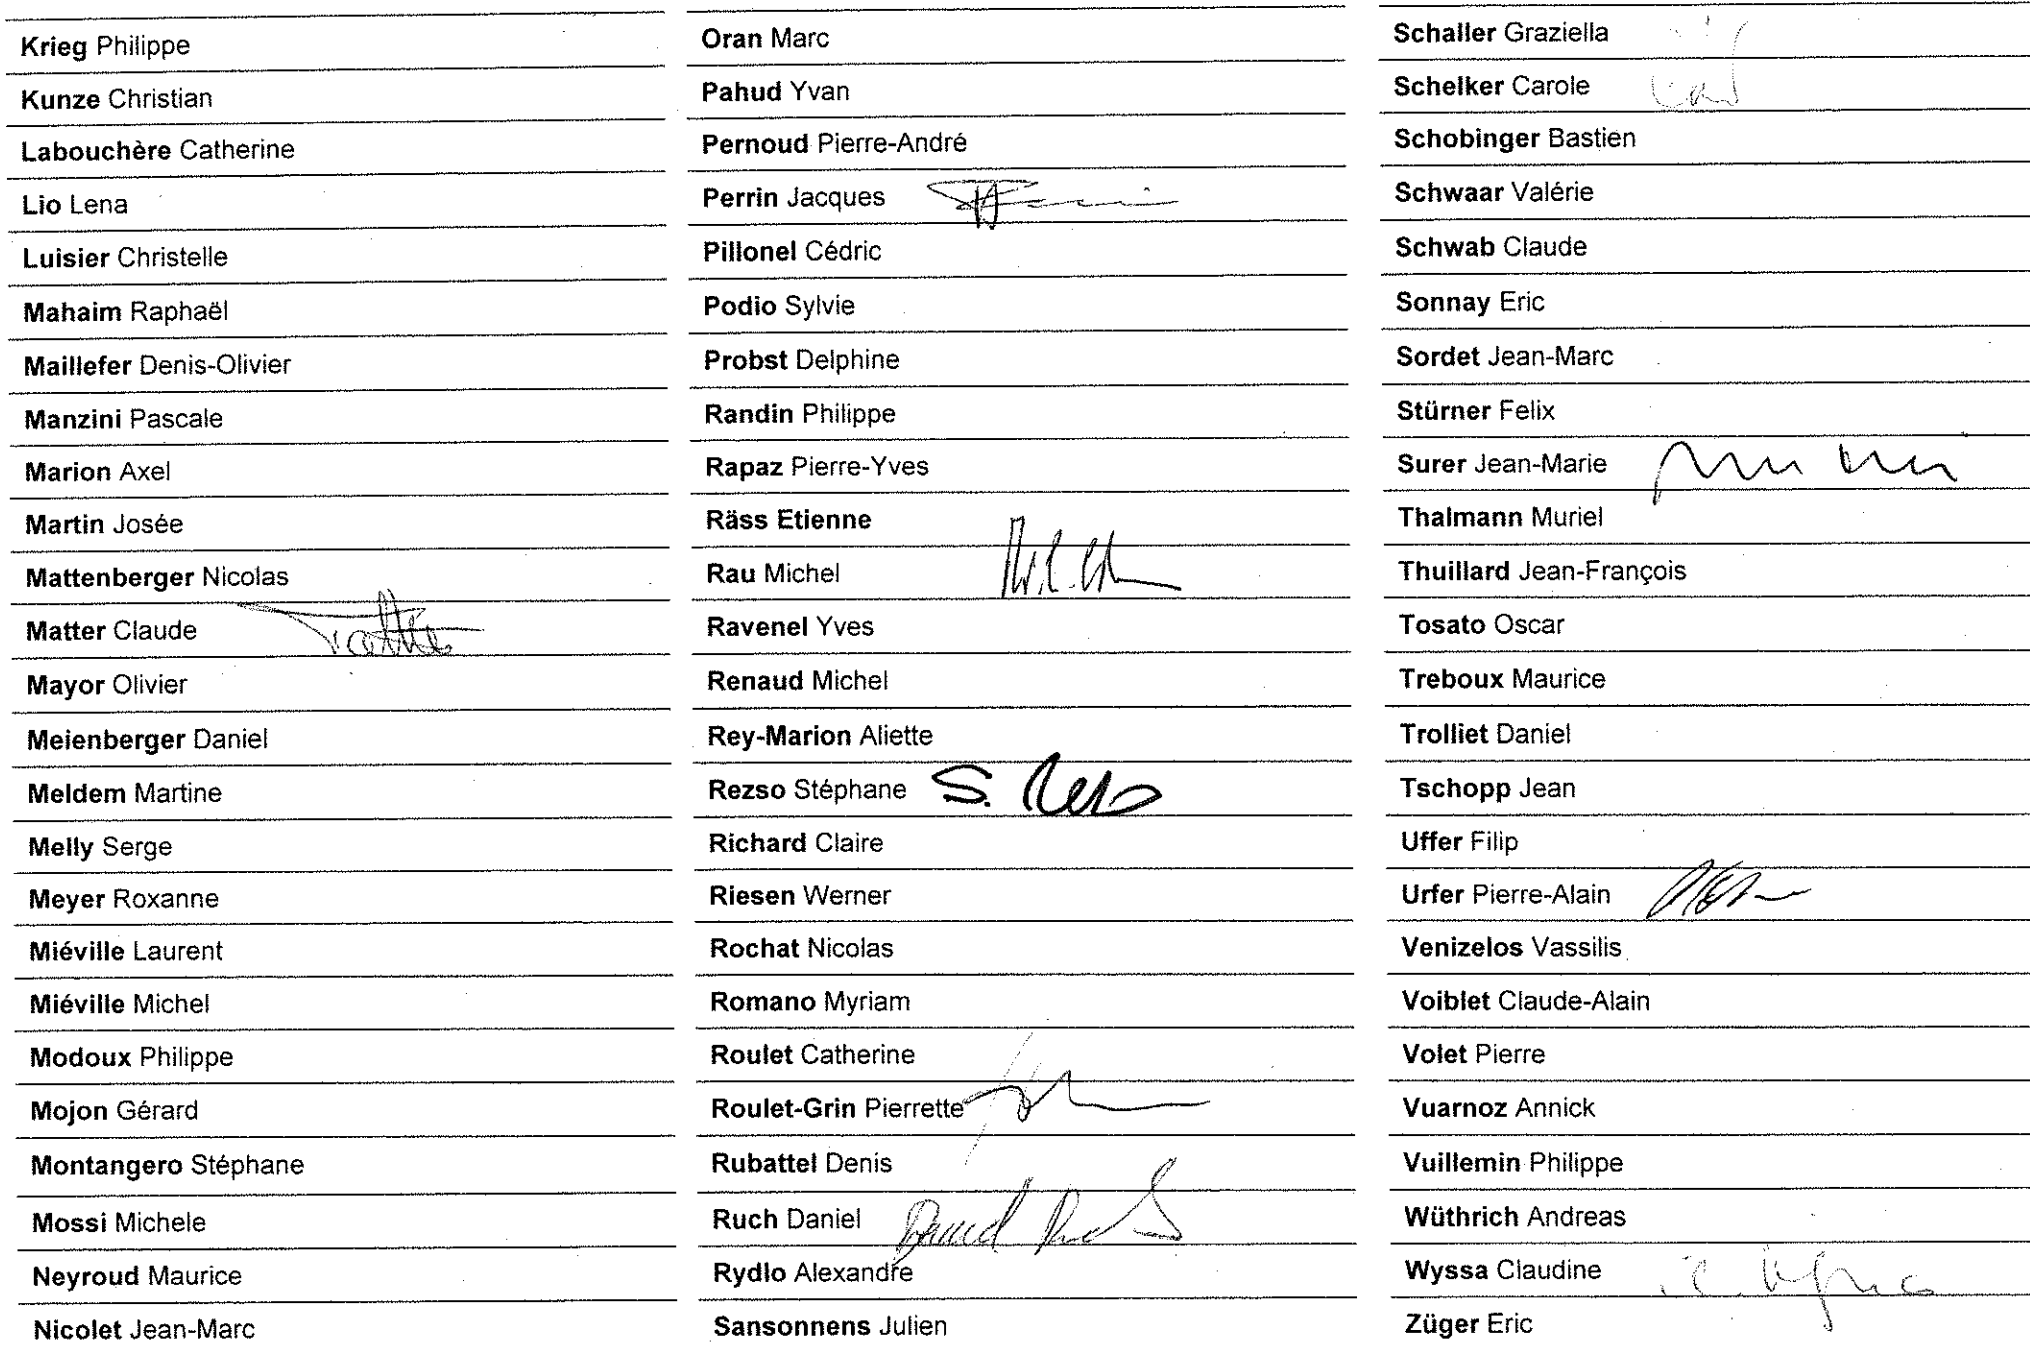 Krieg Philippe
Kunze Christian
Labouchère Catherine
Lio Lena
Luisier Christelle
Mahaim Raphaël
Maillefer Denis-Olivier
Manzini Pascale
Marion Axel
Martin Josée
Mattenberger Nicolas
Matter Claude
Mayor Olivier
Meienberger Daniel
Meldem Martine
Melly Serge
Meyer Roxanne
Miéville Laurent
Miéville Michel
Modoux Philippe
Mojon Gérard
Montangero Stéphane
Mossi Michele
Neyroud Maurice
Nicolet Jean-Marc
Oran Marc
Pahud Yvan
Pernoud Pierre-André
Perrin Jacques
Pillonel Cédric
Podio Sylvie
Probst Delphine
Randin Philippe
Rapaz Pierre-Yves
Räss Etienne
Rau Michel
Ravenel Yves
Renaud Michel
Rey-Marion Aliette
Rezso Stéphane S.
Richard Claire
Riesen Werner
Rochat Nicolas
Romano Myriam
Roulet Catherine
Roulet-Grin Pierrette
Rubattel Denis
Ruch Daniel Daniel
Rydlo Alexandre
Sansonnens Julien
Schaller Graziella
Schelker Carole
Schobinger Bastien
Schwaar Valérie
Schwab Claude
Sonnay Eric
Sordet Jean-Marc
Stürner Felix
Surer Jean-Marie
Thalmann Muriel
Thuillard Jean-François
Tosato Oscar
Treboux Maurice
Trolliet Daniel
Tschopp Jean
Uffer Filip
Urfer Pierre-Alain
Venizelos Vassilis
Voiblet Claude-Alain
Volet Pierre
Vuarnoz Annick
Vuillemin Philippe
Wüthrich Andreas
Wyssa Claudine
Züger Eric